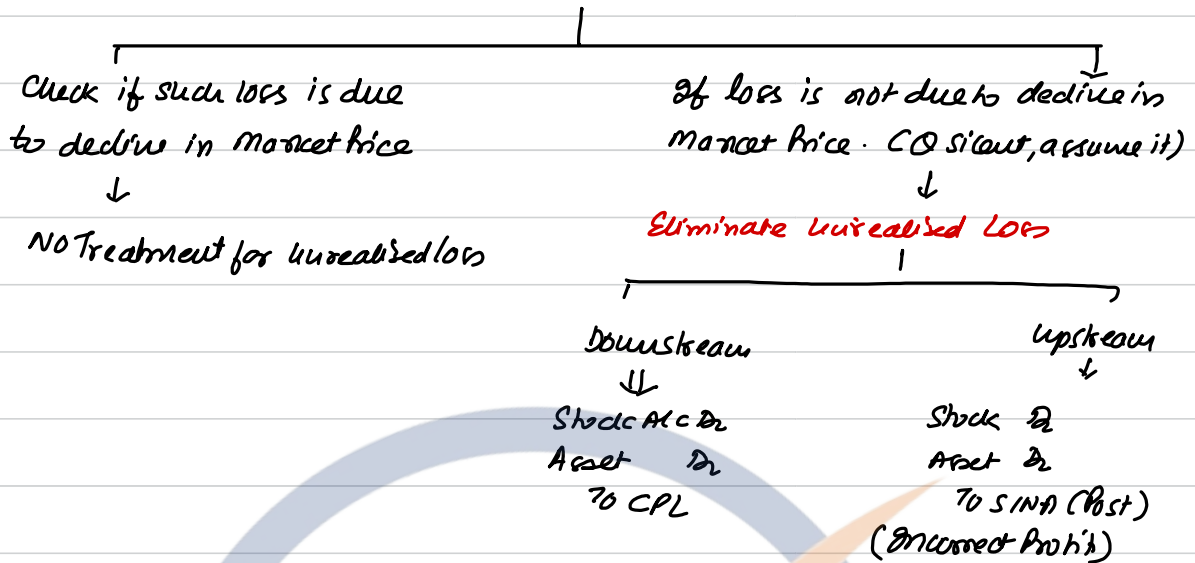 Check if such loss is due
to decline in Market Price
↓
No Treatment for unrealised loss
If loss is not due to decline in
Market Price. (Q silent, assume it)
↓
Eliminate unrealised Loss
Downstream
⇓
Stock A/c Dr
Asset Dr
To CPL
Upstream
↓
Stock Dr
Asset Dr
To SINA (Post)
(Incorrect Profit)